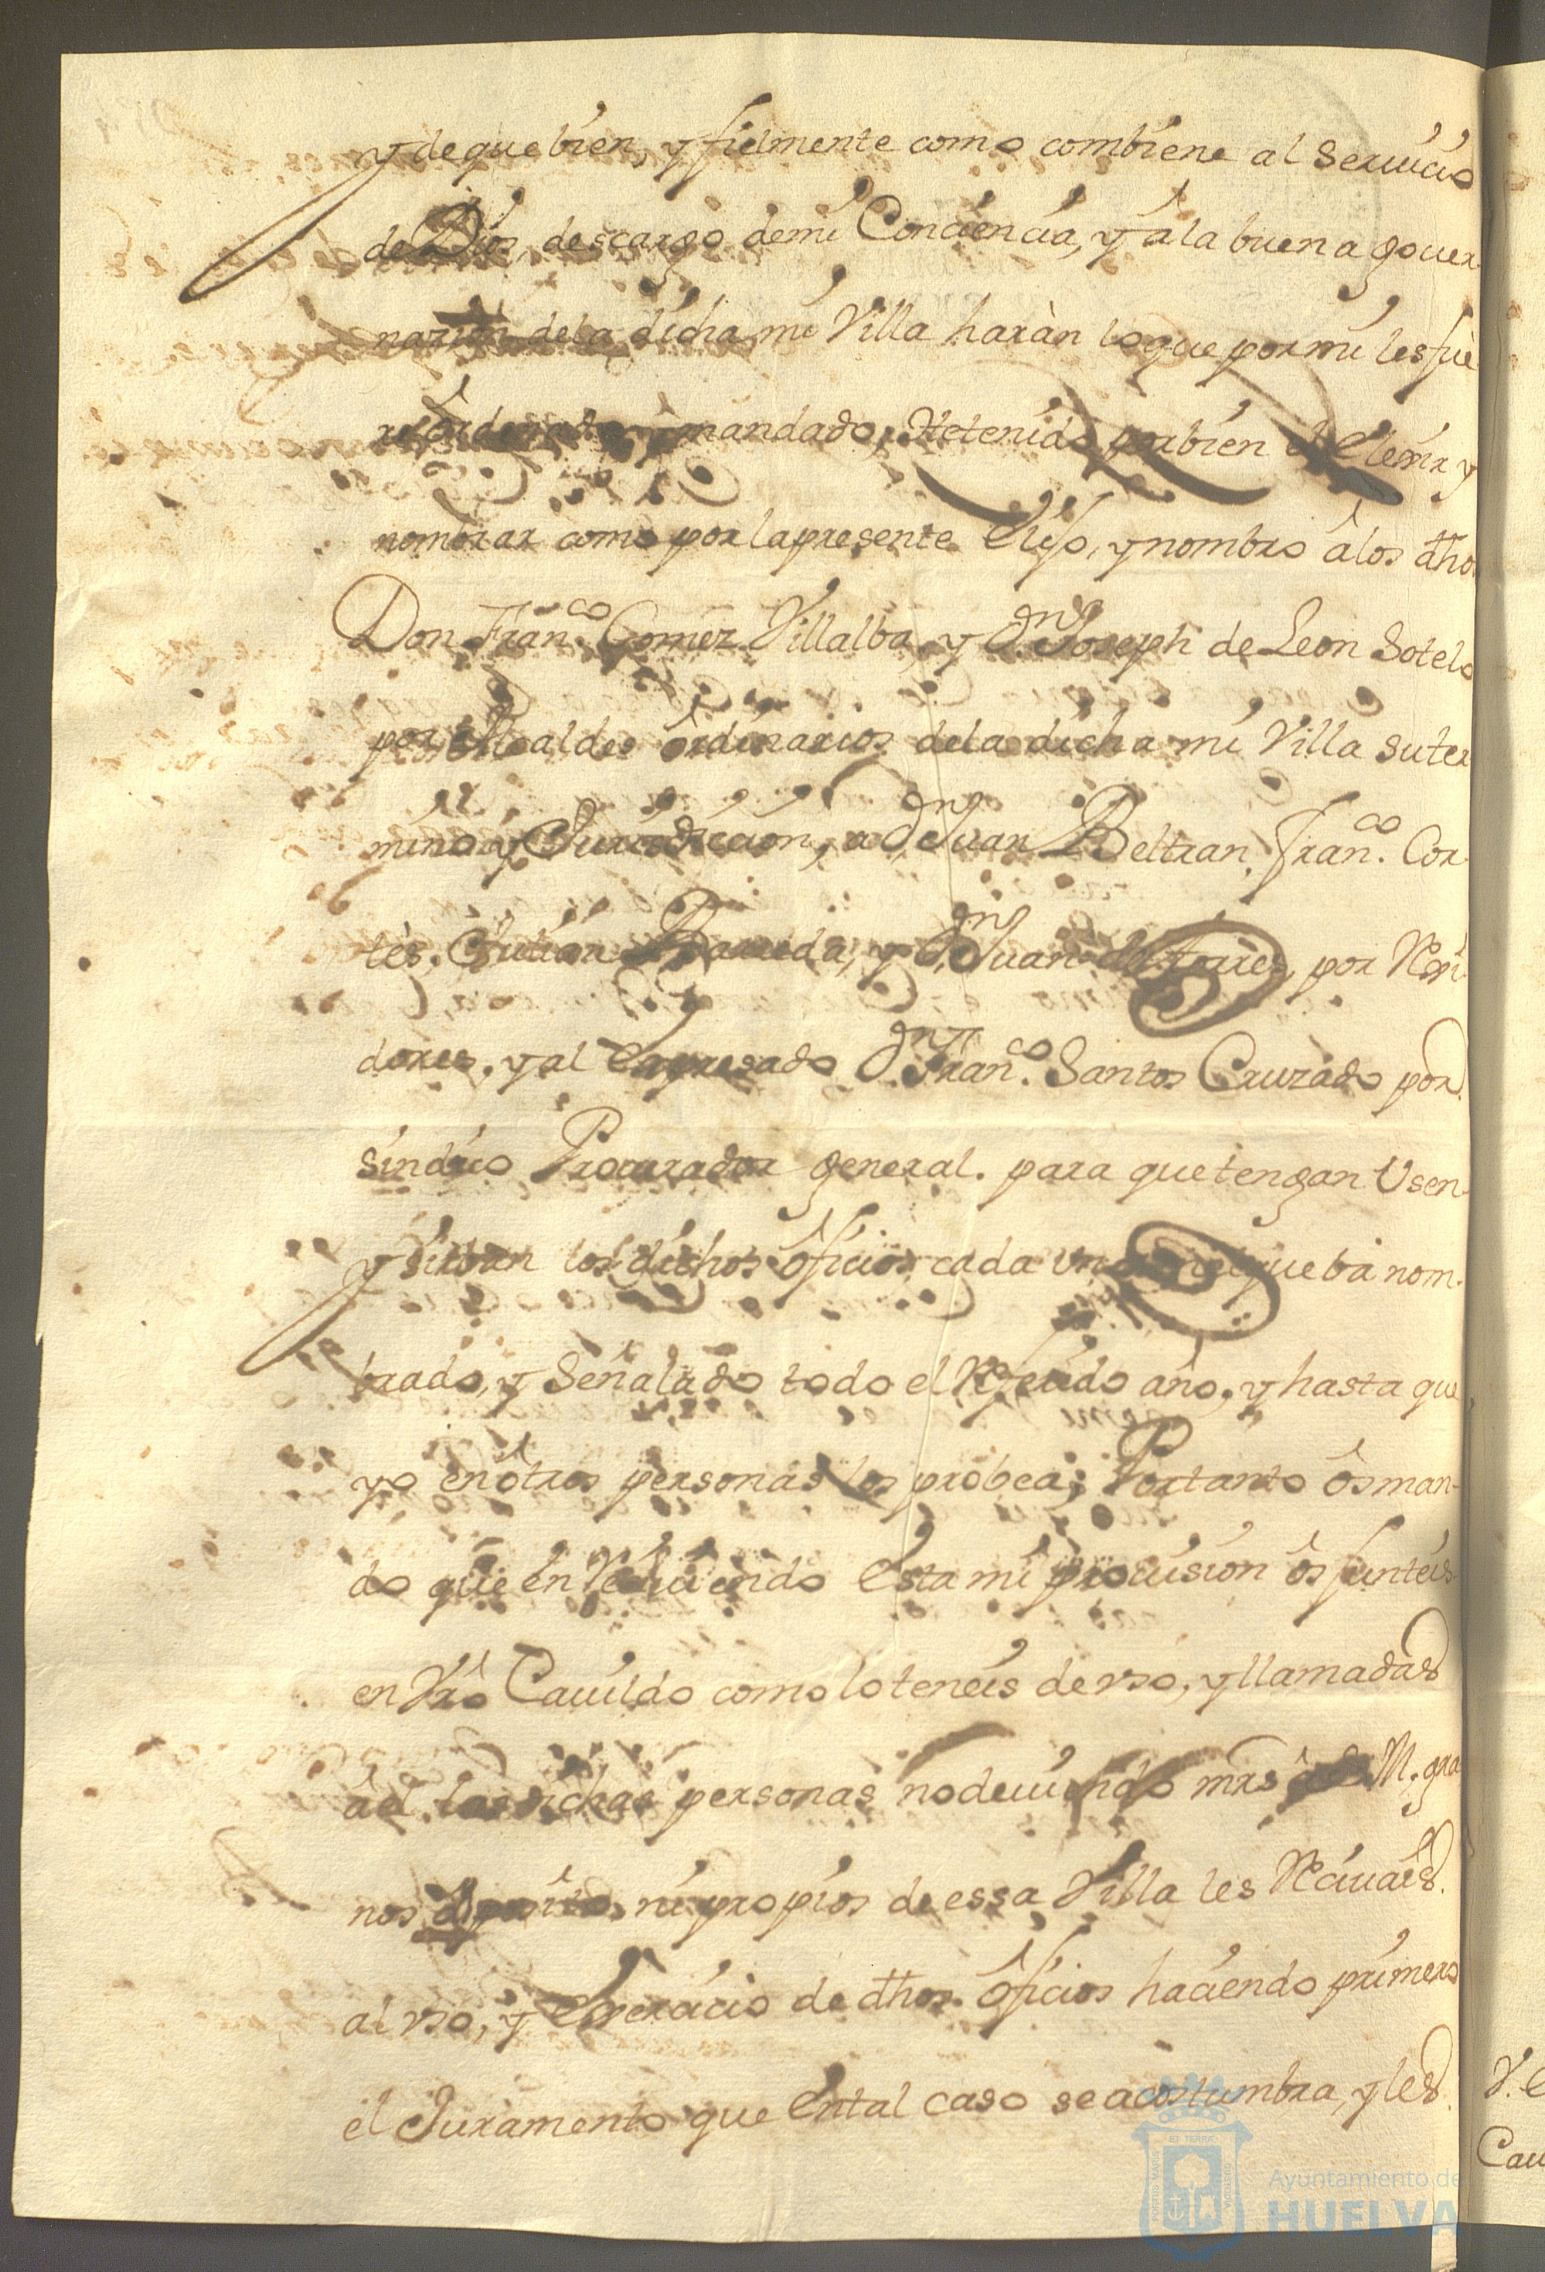 y de que bien, y fielmente como combiene al Seruicio
de Dios, descargo de mi Conciencia, y á la buena gouer-
nazion de la dicha mi Villa haràn lo que por mi les fuè
re ordenado, y mandado, He tenido por bien el Elexir y
nombrar como por la presente Elijo, y nombro â los dhos
Don Fran.co Gomez Villalba, y Dn Joseph de Leon Sotelo
por Alcaldes ôrdinarios de la dicha mi Villa su ter
mino y Jurisdiccion, a Dn Juan Beltran, Fran.co Cor-
tès, Julian Barreda, y Dn Juan de Torres, por Rexi
dores, y al Expresado Dn Fran.co Santos Cruzado por
sindico Procurador general. para que tengan Usen
y Sirban los dichos ôficios cada uno en el que bá nom-
brado, y Señalado todo el Referido año, y hasta que
yo en ôtras personas los probea; Por tanto ôs man-
do que en Reciuiendo Esta mi prouision ôs junteis
en Vrô Cauildo como lo teneis de vso, y llamadas
â el las dichas personas no deuiendo mrs â S. M. gra
nos â Posito, ni propios de essa Villa les Reciuaès
al vso, y Exercicio de dhos ôficios haciendo primero
el Juramento que Ental caso se acostumbra, y les
V. E
Cau
Ayuntamiento de
HUELVA